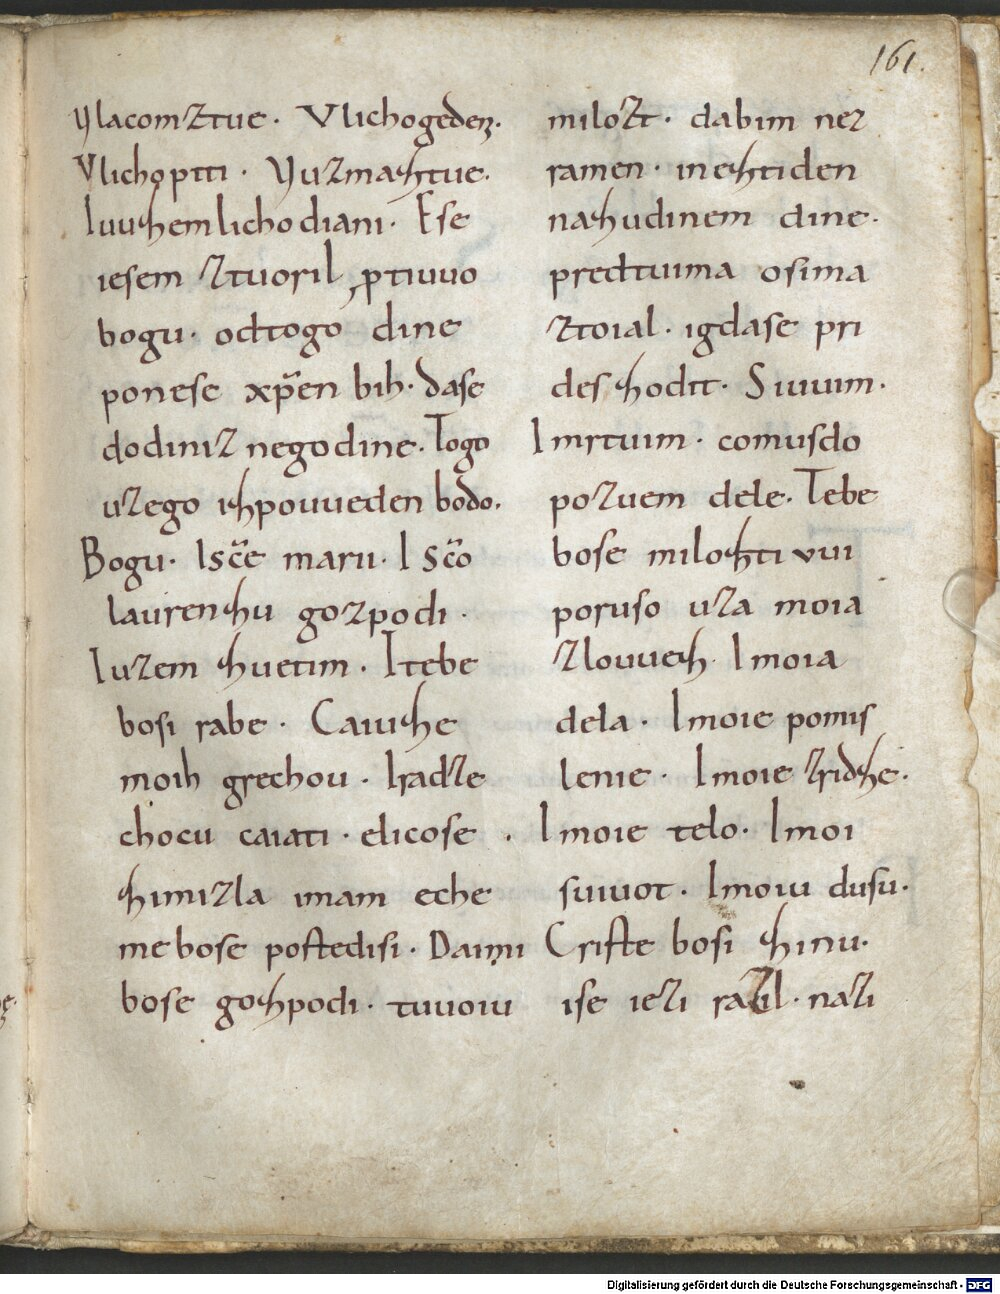 161.
Vlacomztue. Vlichogeden.
Vlichoptti. Vuzmaztue.
Iuuzem lichodiani. Ese
iesem ztuoril, ptiuuo
bogu. odtogo dine
ponese xp̃en bih. dase
dodiniz negodine. Togo
uzego izpouueden bodo.
Bogu. Isc̃e marii. I sc̃o
laurenzu gozpodi.
Iuzem zuetim. Itebe
bosi rabe. Caiuze
moih grechou. Iradze
chocu caiati. elicose
zimizla imam eche
me bose postedisi. Daimi
bose gozpodi. tuuoiu
milozt. dabim nez
ramen. ineztiden
nazudinem dine.
predtuima osima
ztoial. igdase pri
deszodit. Siuuim.
I mrtuim. comusdo
pozuem dele. Tebe
bose milozti vui
poruso uza moia
zlouuez. I moia
dela. I moie pomis
lenie. I moie zridze.
I moie telo. I moi
siuuot. I moiu dusu.
Criste bosi zinu.
ise iezi razil. nazi
Digitalisierung gefördert durch die Deutsche Forschungsgemeinschaft - DFG